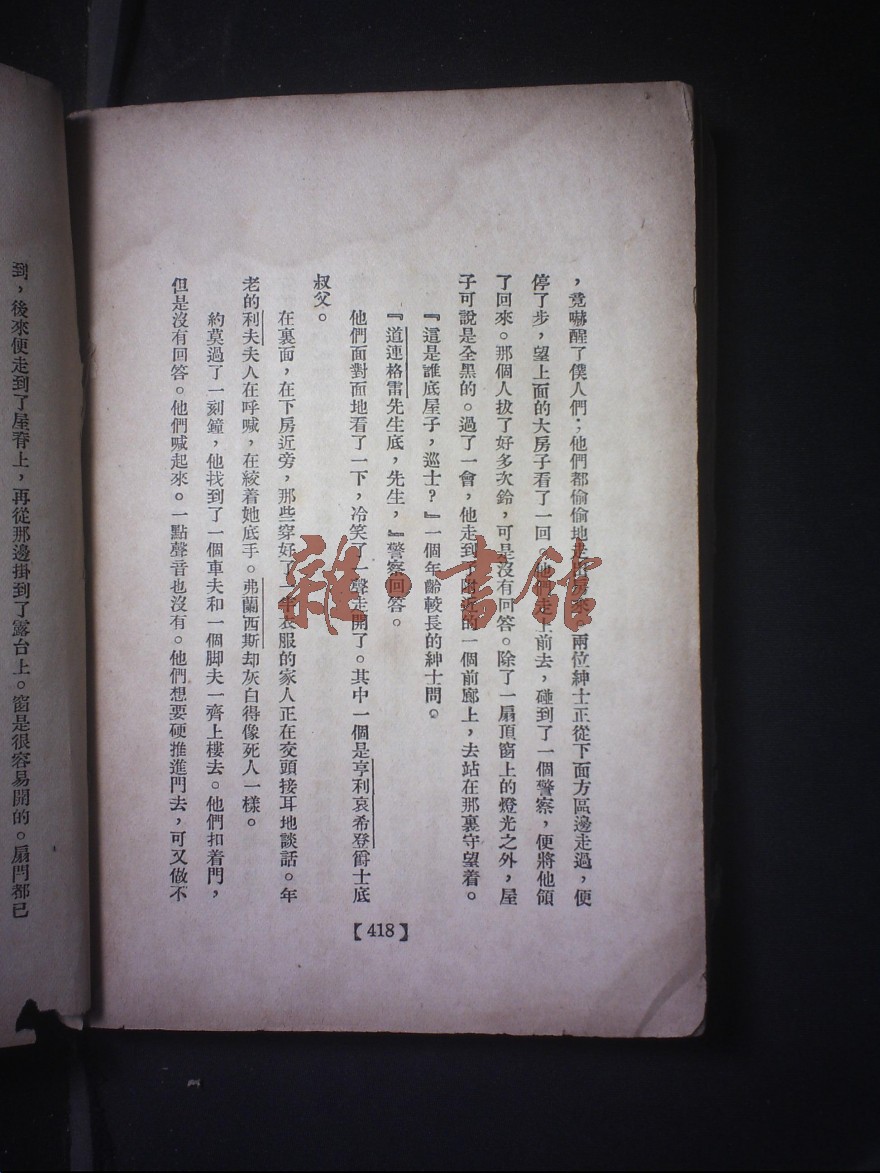 ，竟嚇醒了僕人們；他們都偷偷地走出房來。兩位紳士正從下面方區邊走過，便
停了步，望上面的大房子看了一回。他們走上前去，碰到了一個警察，便將他領
了回來。那個人拔了好多次鈴，可是沒有回答。除了一扇頂窗上的燈光之外，屋
子可說是全黑的。過了一會，他走到了附近的一個前廊上，去站在那裏守望着。
『這是誰底屋子，巡士？』一個年齡較長的紳士問。
『道連格雷先生底，先生，』警察回答。
他們面對面地看了一下，冷笑了一聲走開了。其中一個是亨利哀希登爵士底
叔父。
在裏面，在下房近旁，那些穿好了一半衣服的家人正在交頭接耳地談話。年
老的利夫夫人在呼喊，在絞着她底手。弗蘭西斯却灰白得像死人一樣。
約莫過了一刻鐘，他找到了一個車夫和一個脚夫一齊上樓去。他們扣着門，
但是沒有回答。他們喊起來。一點聲音也沒有。他們想要硬推進門去，可又做不
【418】
到，後來便走到了屋脊上，再從那邊掛到了露台上。窗是很容易開的。扇閂都已
雜·書館